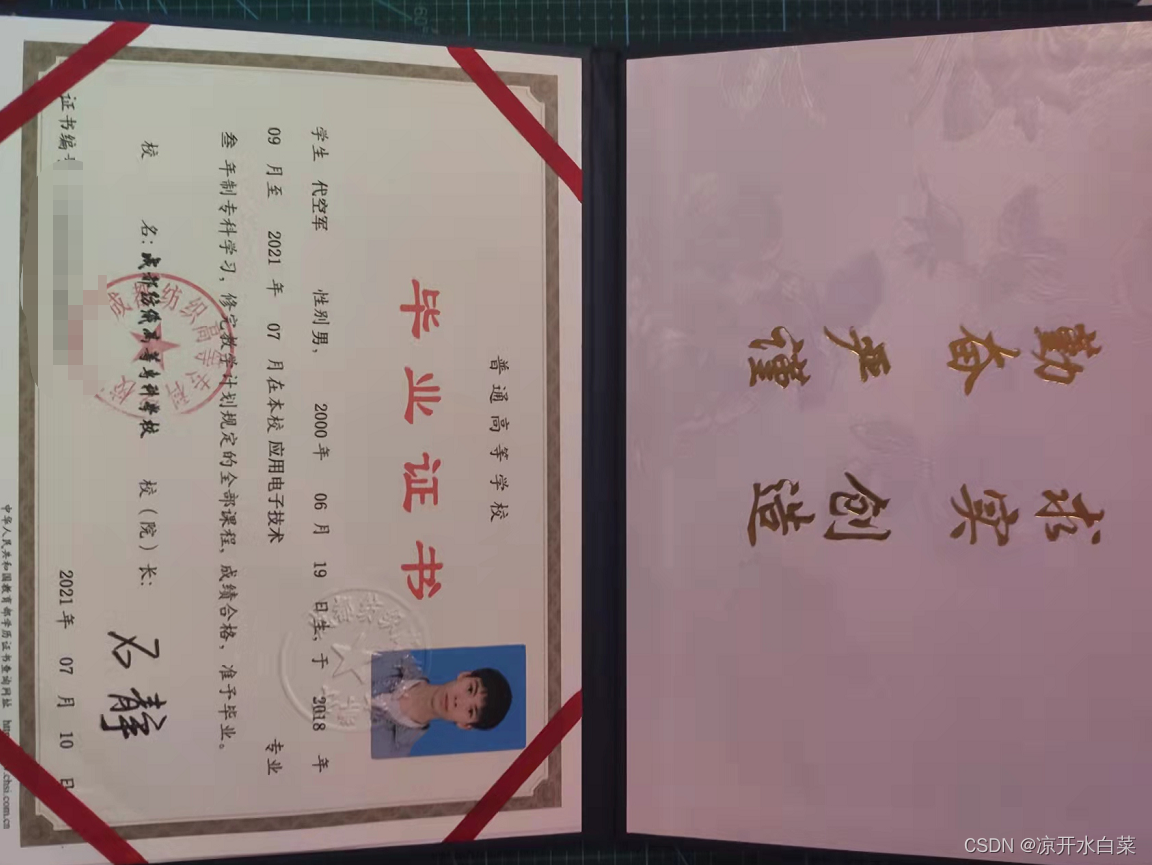 普通高等学校
毕业证书
学生 代空军 性别 男, 2000 年 06 月 19 日生, 于 2018 年
09 月至 2021 年 07 月在本校 应用电子技术 专业
叁 年制专科学习, 修完教学计划规定的全部课程, 成绩合格, 准予毕业。
校 名: 成都纺织高等专科学校 校(院)长: 石静
证书编号
2021 年 07 月 10 日
中华人民共和国教育部学历证书查询网址
chsi.com.cn
勤奋 求实
严谨 创造
CSDN @凉开水白菜